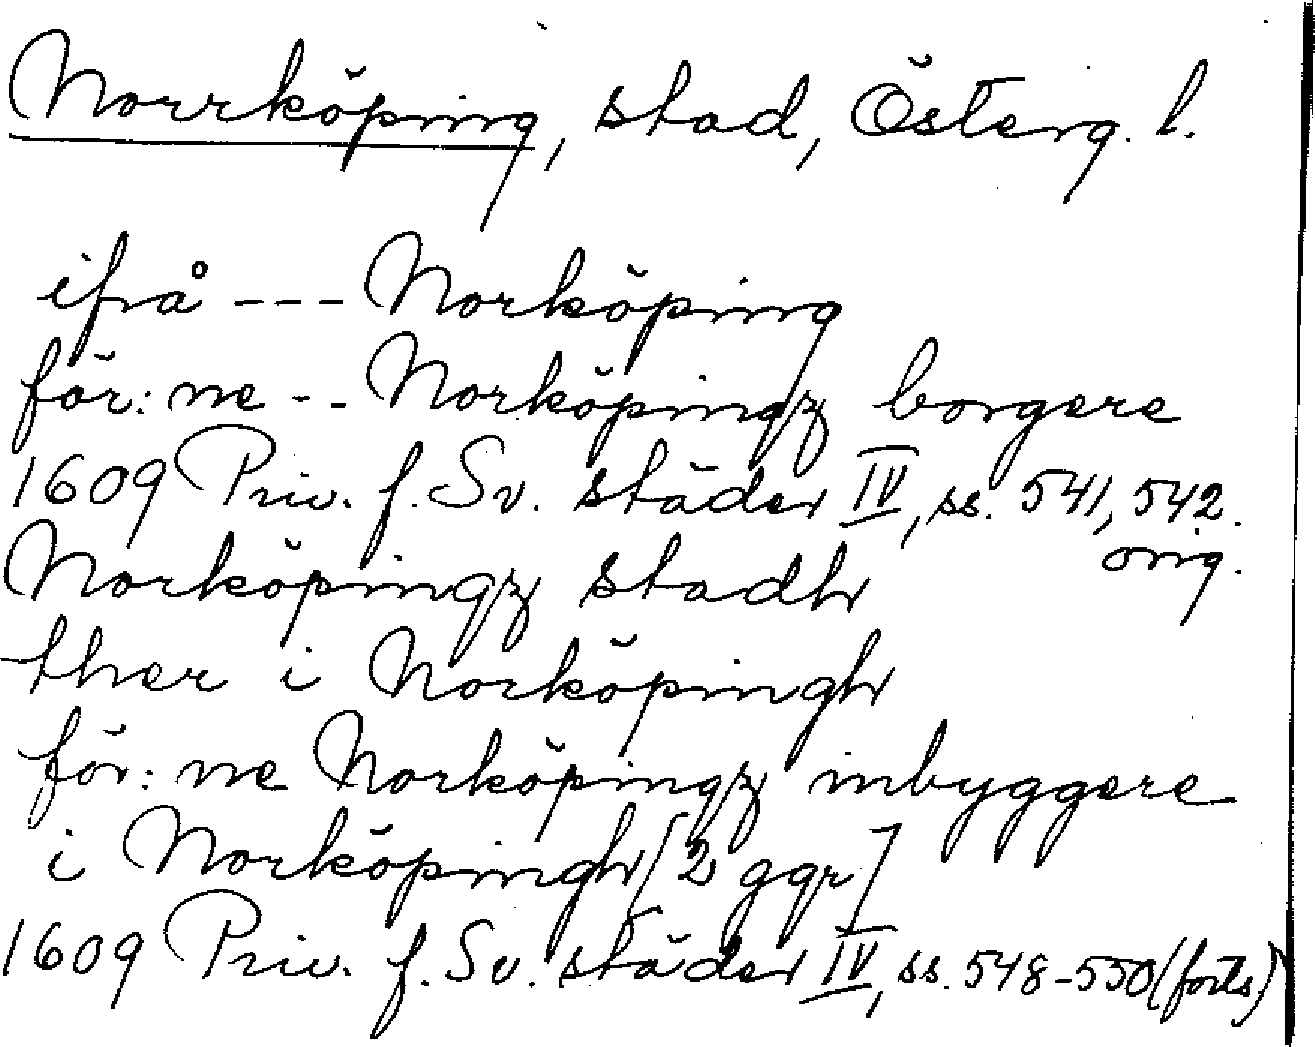 Norrköping, stad, Österg. l.
ifrå --- Norköping
för: ne -- Norköpingz borgere
1609 Priv. f. Sv. städer IV, ss. 541, 542.
orig.
Norköpingz stadh
ther i Norköpingh
för: ne Norköpingz inbyggere
i Norköpingh [2 ggr]
1609 Priv. f. Sv. städer IV, ss. 548-550 (forts)